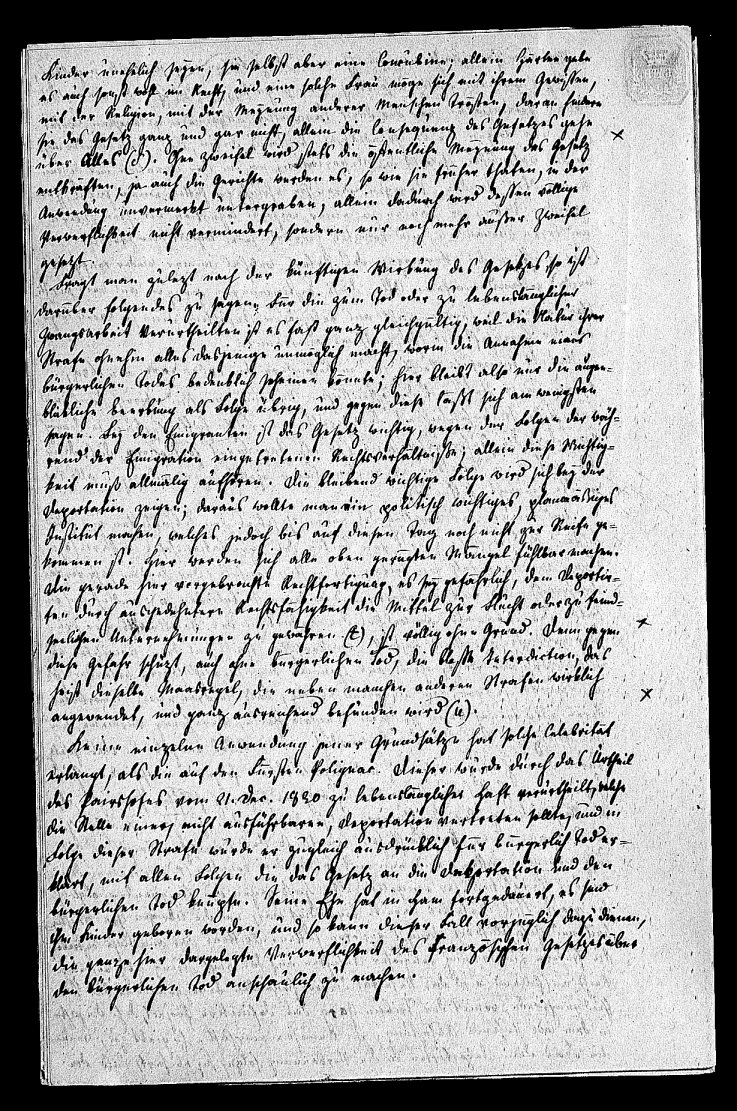 Kinder unehelich seyen, sie selbst aber eine Concubine; allein Härten gebe
es auch sonst wohl im Recht, und eine solche Frau möge sich mit ihrem Gewissen,
mit der Religion, mit der Meynung anderer Menschen trösten, daran hindere
sie das Gesetz ganz und gar nicht, allein die Consequenz des Gesetzes gehe
über Alles (s). Ohne Zweifel wird stets die öffentliche Meynung das Gesetz
entkräften, ja auch die Gerichte werden es, so wie sie früher thaten, in der
Anwendung unvermerkt untergraben, allein dadurch wird dessen völlige
Verwerflichkeit nicht vermindert, sondern nur noch mehr außer Zweifel
gesetzt.
Fragt man zuletzt nach der künftigen Wirkung des Gesetzes so ist
darüber folgendes zu sagen. Für die zum Tod oder zu lebenslänglicher
Zwangsarbeit Verurtheilten ist es fast ganz gleichgültig, weil die Natur ihrer
Strafe ohnehin alles dasjenige unmöglich macht, worin die Annahme eines
bürgerlichen Todes bedenklich scheinen könnte; hier bleibt also nur die augen-
blickliche Beerbung als Folge übrig, und gegen diese läßt sich am wenigsten
sagen. Bey den Emigranten ist das Gesetz wichtig, wegen der Folgen der wäh-
rend der Emigration eingetretenen Rechtsverhältnisse; allein diese Wichtig-
keit muß allmälig aufhören. Die bleibend wichtige Folge wird sich bey der
Deportation zeigen; daraus wollte man ein politisch wichtiges, planmäßiges
Institut machen, welches jedoch bis auf diesen Tag noch nicht zur Reife ge-
kommen ist. Hier werden sich alle oben gerügten Mängel fühlbar machen.
Die gerade hier vorgebrachte Rechtfertigung, es sey gefährlich, dem Deportir-
ten durch ausgedehntere Rechtsfähigkeit die Mittel zur Flucht oder zu feind-
seeligen Unternehmungen zu gewähren (t), ist völlig ohne Grund. Denn gegen
diese Gefahr schützt, auch ohne bürgerlichen Tod, die bloße Interdiction, das
heißt dieselbe Maasregel, die neben manchen anderen Strafen wirklich
angewendet, und ganz ausreichend befunden wird (u).
Keine einzelne Anwendung jener Grundsätze hat solche Celebrität
erlangt, als die auf den Fürsten Polignac. Dieser wurde durch das Urtheil
des Pairshofes vom 21. Dec. 1830 zu lebenslänglicher Haft verurtheilt, welche
die Stelle einer, nicht ausführbaren, Deportation vertreten sollte, und in
Folge dieser Strafe wurde er zugleich ausdrücklich für bürgerlich todt er-
klärt, mit allen Folgen die das Gesetz an die Deportation und den
bürgerlichen Tod knüpfe. Seine Ehe hat in Ham fortgedauert, es sind
ihm Kinder geboren worden, und so kann dieser Fall vorzüglich dazu dienen,
die ganze hier dargelegte Verwerflichkeit des Französischen Gesetzes über
den bürgerlichen Tod anschaulich zu machen.